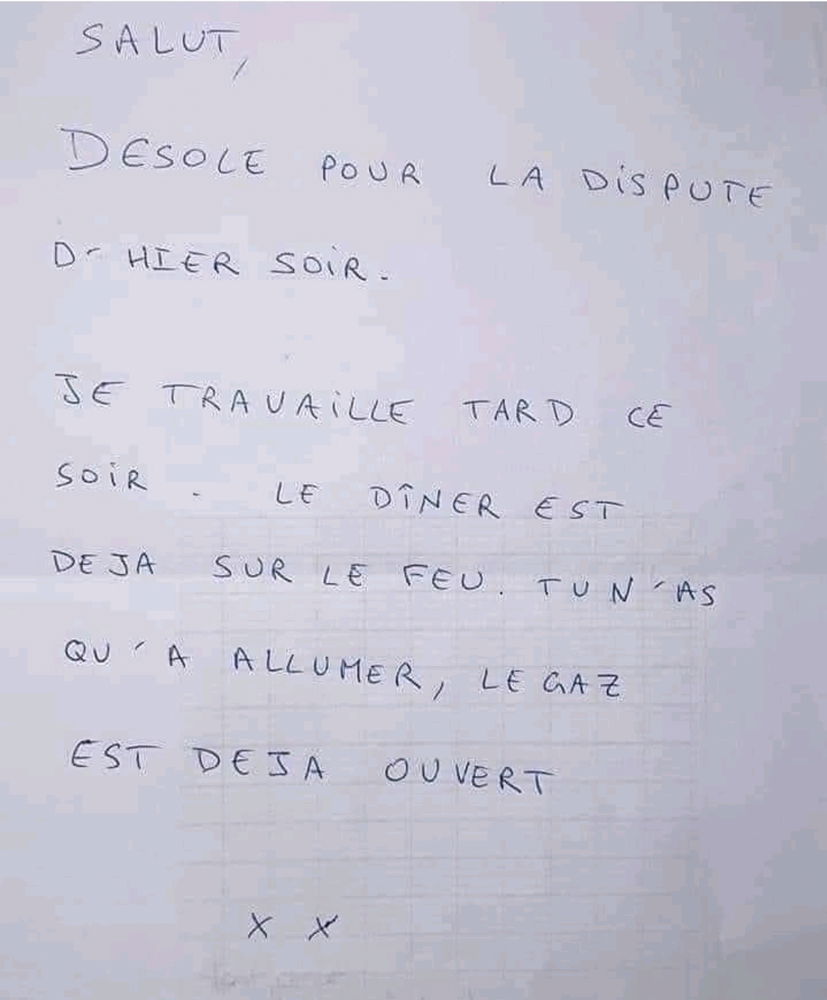 SALUT,
DESOLE POUR LA DISPUTE
D'HIER SOIR.
JE TRAVAILLE TARD CE
SOIR. LE DÎNER EST
DEJA SUR LE FEU. TU N'AS
QU'A ALLUMER, LE GAZ
EST DEJA OUVERT
X X